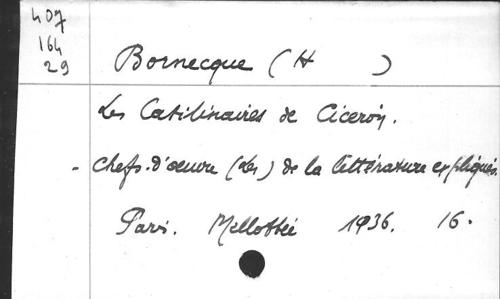 407
164
29
Bornecque (H )
Les Catilinaires de Cicéron.
- Chefs-d'œuvre (Les) de la littérature expliqués.
Paris. Mellottée 1936. 16.